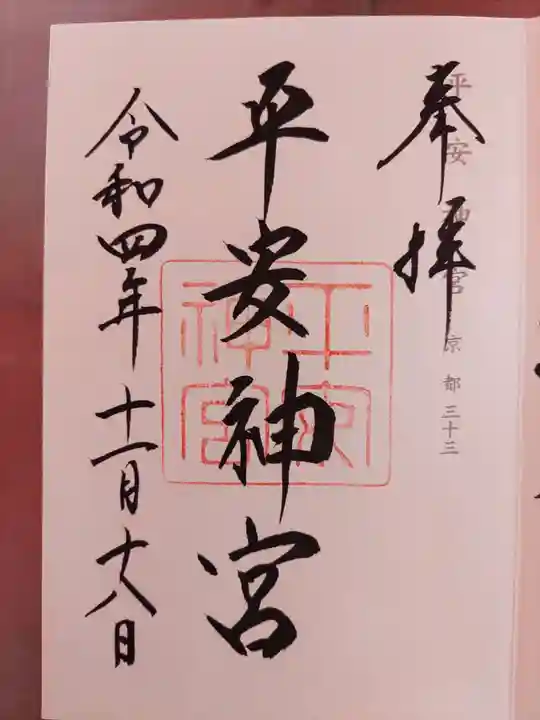 奉拝
平安神宮 京都 三十三
平安神宮
平安神宮
令和四年十一月十八日